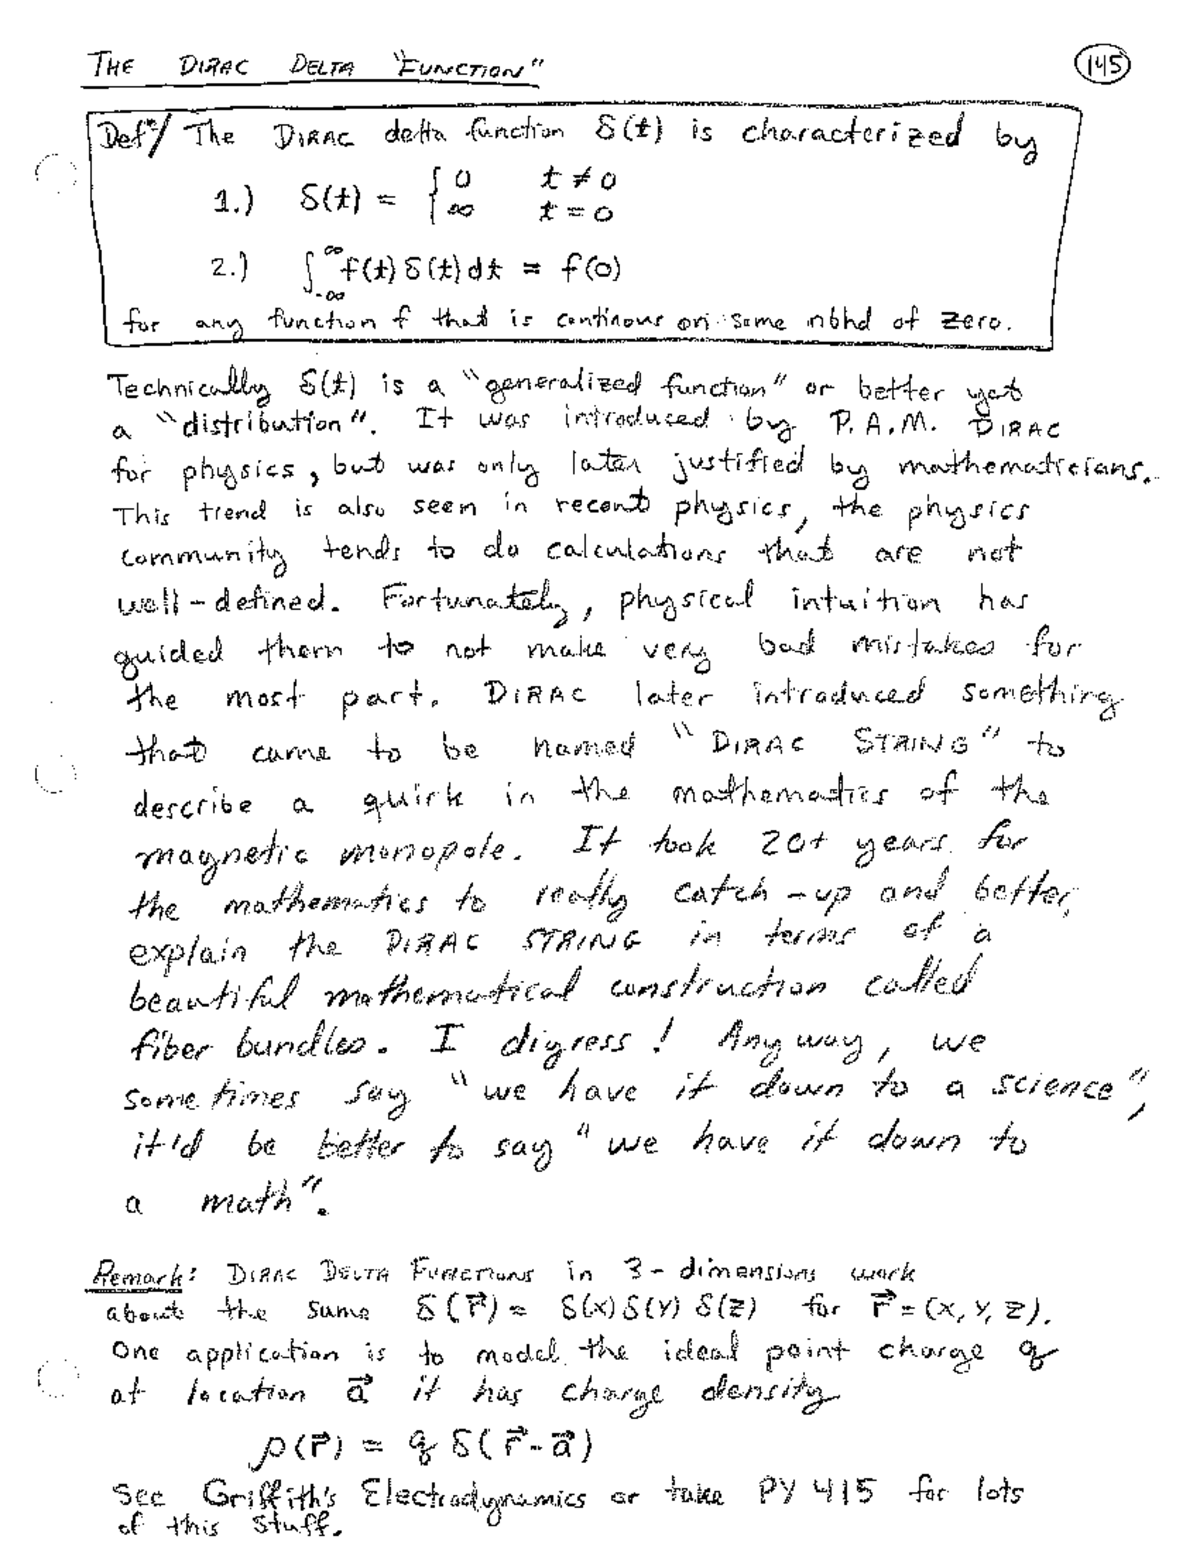 THE DIRAC DELTA "FUNCTION"
145
Defⁿ/ The DIRAC delta function δ(t) is characterized by
1.) δ(t) = { 0 t ≠ 0
∞ t = 0
2.) ∫_{-∞}^{∞} f(t) δ(t) dt = f(0)
for any function f that is continous on some nbhd of zero.
Technically δ(t) is a "generalized function" or better yet
a "distribution". It was introduced by P.A.M. DIRAC
for physics, but was only later justified by mathematicians.
This trend is also seen in recent physics, the physics
community tends to do calculations that are not
well-defined. Fortunately, physical intuition has
guided them to not make very bad mistakes for
the most part. DIRAC later introduced something
that came to be named "DIRAC STRING" to
describe a quirk in the mathematics of the
magnetic monopole. It took 20+ years for
the mathematics to really catch-up and better
explain the DIRAC STRING in terms of a
beautiful mathematical construction called
fiber bundles. I digress! Anyway, we
sometimes say "we have it down to a science",
it'd be better to say "we have it down to
a math".
Remark: DIRAC DELTA FUNCTIONS in 3-dimensions work
about the same δ(r⃗) = δ(x) δ(y) δ(z) for r⃗ = (x, y, z).
One application is to model the ideal point charge q
at location a⃗ it has charge density
ρ(r⃗) = q δ(r⃗ - a⃗)
See Griffith's Electrodynamics or take PY 415 for lots
of this stuff.